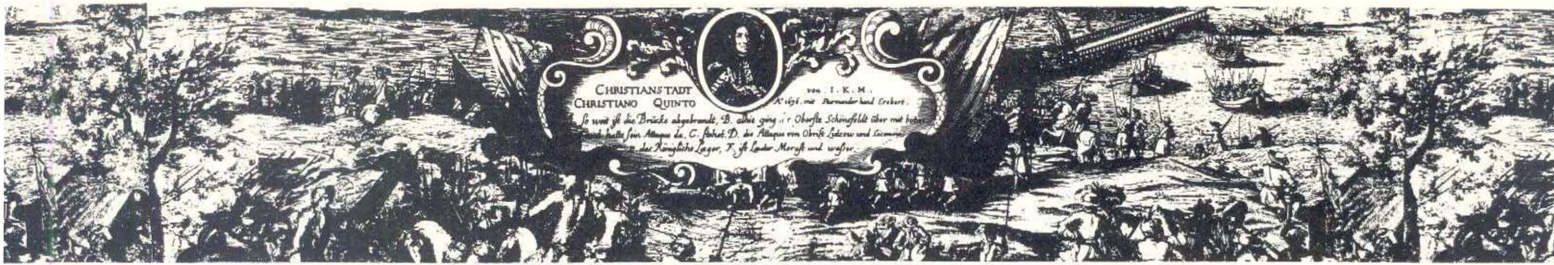 CHRISTIANSTADT von I. K. M.
CHRISTIANO QUINTO Aº 1676. mit Sturmender hand Erobert.
So weit ist die Brücke abgebrandt, B. alhie ging der Oberste Schönsfeldt über mit
hatte sein Attaque da, C. stehet. D. die Attaque von Obrist Lützow und
das Königliche Lager, F. ist Lauter Morast und wasser.